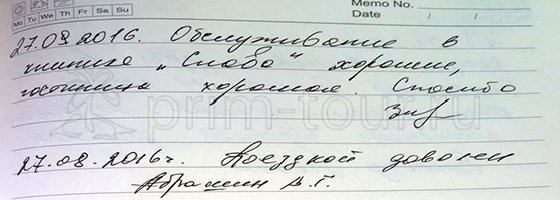 Memo No.
Date / /
Mo Tu We Th Fr Sa Su
27.08.2016. Обслуживание в
клинике „Слаба“ хорошее,
гостиница хорошая. Спасибо
prim-tour.ru
27.08.2016г. Поездкой доволен
Абрамин В.Г.